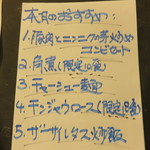 本日のおすすめ:
1. 豚肉とニンニクの芽炒め
コンビセット
2. 角煮(限定食)
3. チャーシュー麺
4. チンジャオロース(限定食)
5. ザーサイレタス炒飯